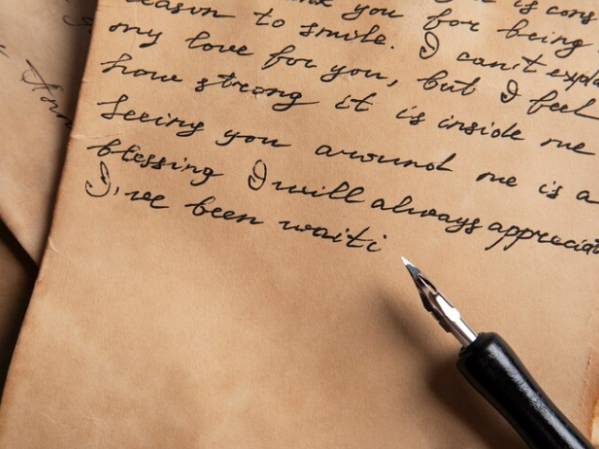 you for being
reason to smile. I can't expla
my love for you, but I feel
how strong it is inside me
Seeing you around me is a
blessing I will always appreciat
I've been waiti